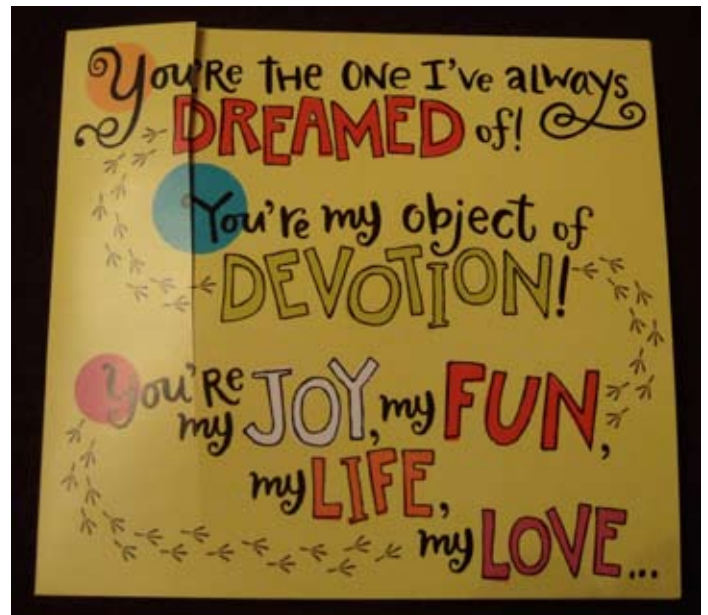 You're the one I've always
DREAMED of!
You're my object of
DEVOTION!
You're
my JOY, my FUN,
my LIFE,
my LOVE...